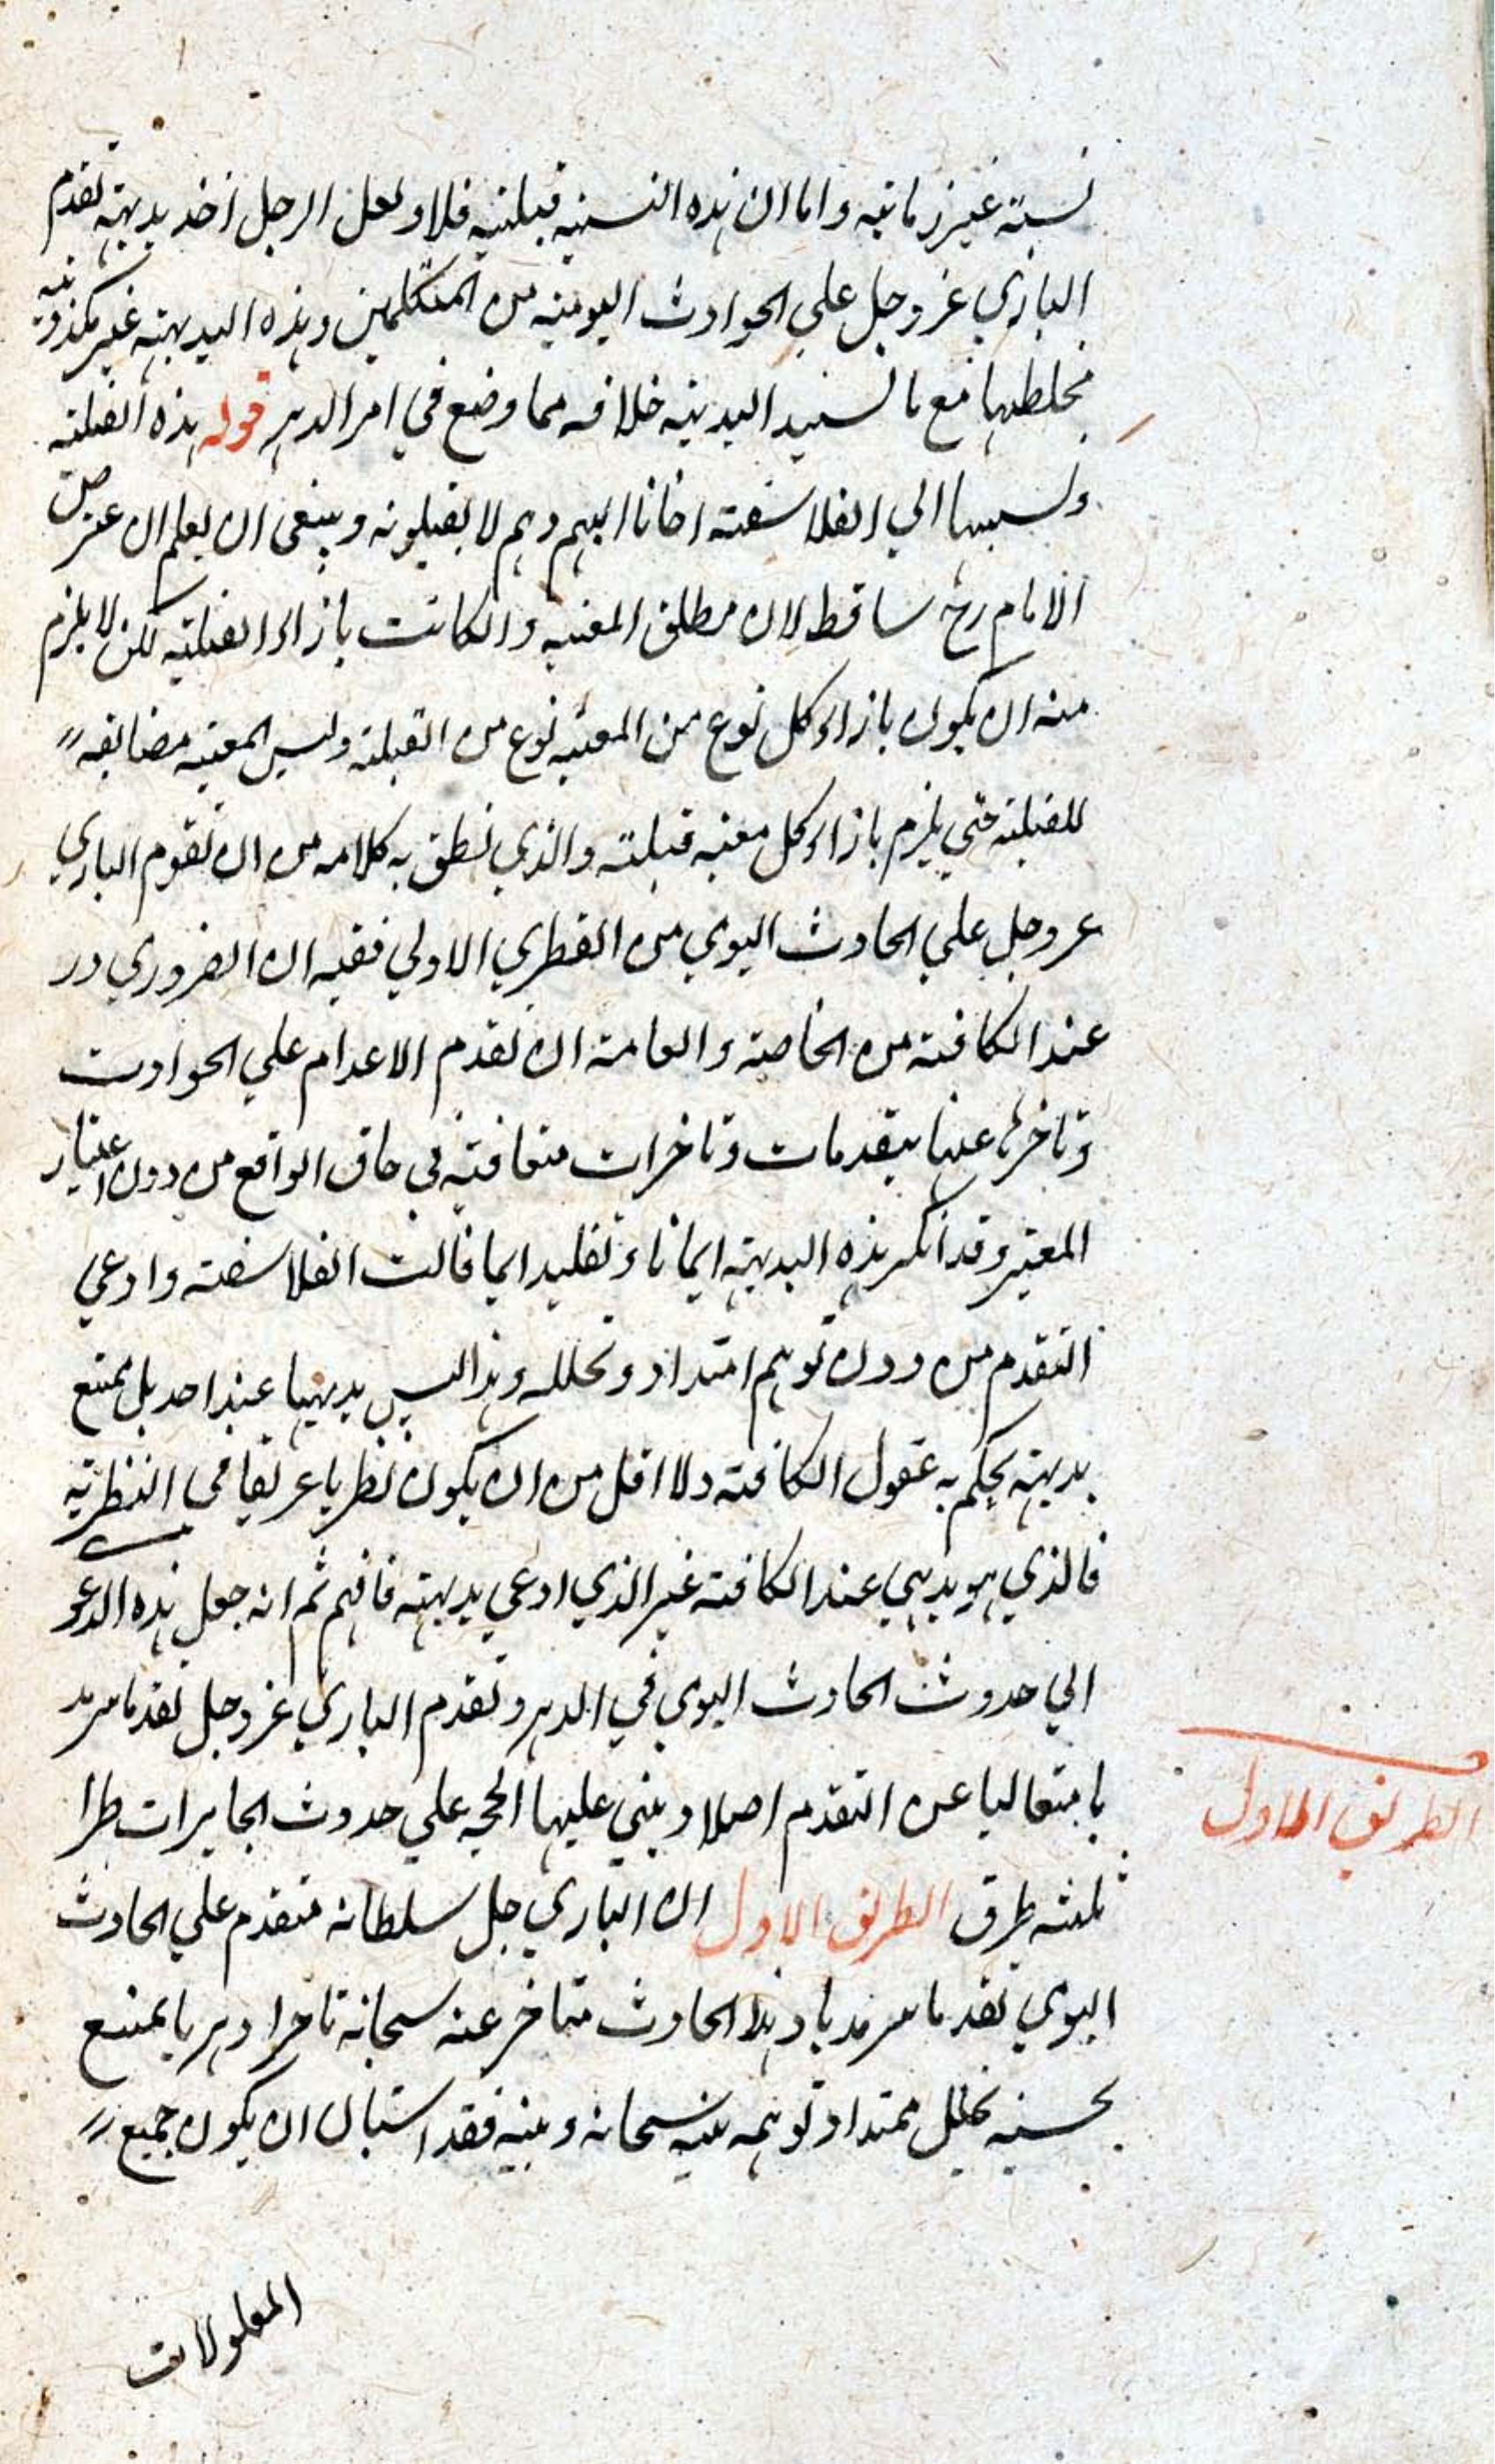 نسبة غير زمانية واما ان هذه النسبة قبلية فلا ولعل الرجل اخذ بديهة تقدم
الباري عز وجل علي الحوادث اليومية من المتكلمين وهذه البديهة غير مكذوبة
فخلطها مع ما خلافه مما وضع في امر الدهر قوله هذه القبلية
ونسبها الي الفلاسفة اليهم وهم لا يقبلونه وينبغي ان يعلم ان
الامام رح ساقط لان مطلق المعية وان كانت بازاء القبلية لكن لا يلزم
منه ان يكون بازاء كل نوع من المعية نوع من القبلية وليس المعية مضايفة
للقبلية حتي يلزم بازاء كل معية قبلية والذي نطق به كلامه من ان تقوم الباري
عز وجل علي الحادث اليومي من الفطري الاولي ففيه ان الضروري
عند الكافة من الخاصة والعامة ان تقدم الاعدام علي الحوادث
وتاخرها عنها تقدمات وتاخرات متعاقبة في حاق الواقع من دون اعتبار
المعتبر وقد انكر هذه البديهة ايمانا وتقليدا بما قالت الفلاسفة وادعي
التقدم من دون توهم امتداد وتخلله وهذا ليس بديهيا عند احد بل يمتنع
بديهة يحكم به عقول الكافة ولا اقل من ان يكون نظريا عريقا في النظرية
فالذي هو بديهي عند الكافة غير الذي ادعي بديهته فافهم ثم انه جعل هذه الدعوى
الي حدوث الحادث اليومي في الدهر وتقدم الباري عز وجل تقدما سرمد
يا متعاليا عن التقدم اصلا ويبني عليها الحجة علي حدوث الجايزات طرا
ثلثة طرق الطريق الاول ان الباري جل سلطانه متقدم علي الحادث
اليومي تقدما سرمديا وهذا الحادث متاخر عنه سبحانه تاخرا دهريا يمتنع
بحسبه تخلل ممتد او توهمه بينه سبحانه وبينه فقد استبان ان يكون جميع
المعلولات
الطريق الاول